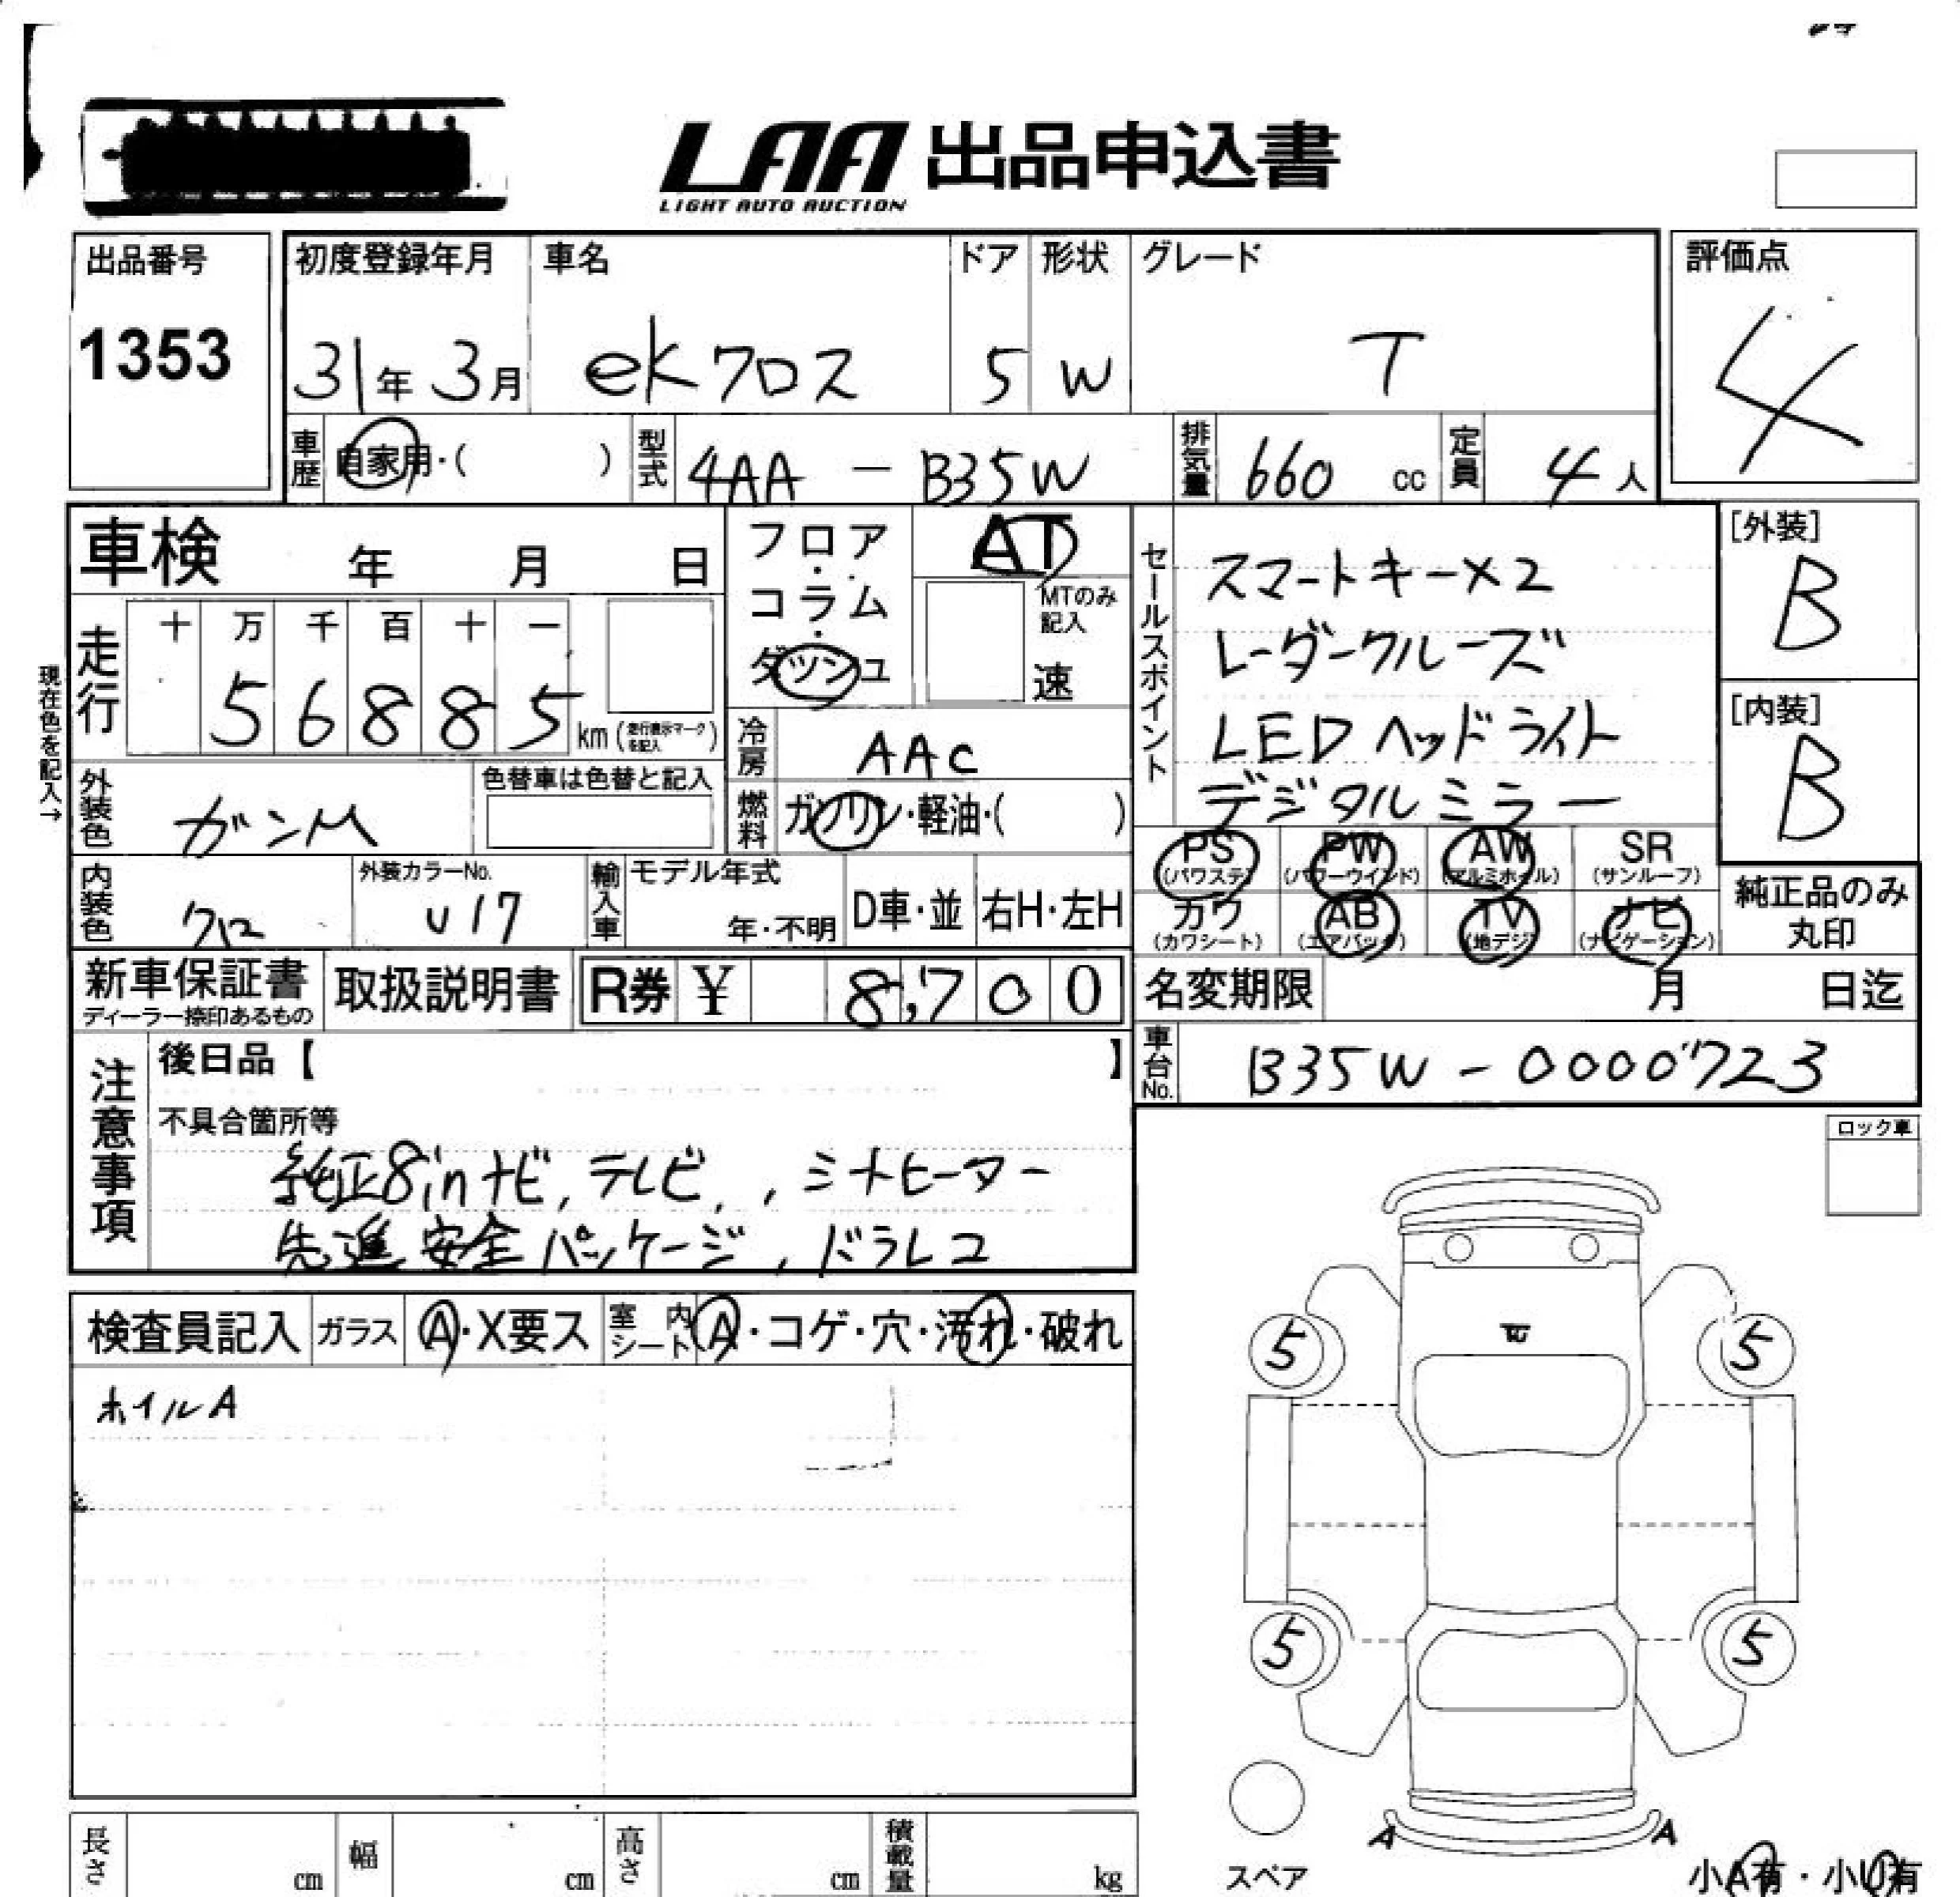 LAA 出品申込書
LIGHT AUTO AUCTION
出品番号
1353
初度登録年月
31年 3月
車名
eKクロス
ドア
5
形状
W
グレード
T
評価点
4
車歴 自家用・( )
型式 4AA - B35W
排気量 660 cc
定員 4人
車検 年 月 日
フロア・コラム・ダッシュ
AT
MTのみ記入
速
セールスポイント
スマートキー×2
レーダークルーズ
LEDヘッドライト
デジタルミラー
[外装]
B
[内装]
B
現在色を記入→
走行 十 万 千 百 十 一
5 6 8 8 5 km (走行表示マークを記入)
冷房 AAC
燃料 ガソリン・軽油・( )
外装色 ガンM
色替車は色替と記入
内装色 クロ
外装カラーNo.
U17
輸入車 モデル年式
年・不明
D車・並 右H・左H
PS (パワステ) PW (パワーウインド) AW (アルミホイル) SR (サンルーフ)
カワ (カワシート) AB (エアバック) TV (地デジ) ナビ (ナビゲーション)
純正品のみ
丸印
新車保証書
ディーラー捺印あるもの
取扱説明書
R券 ¥ 8,700
名変期限 月 日迄
車台No. B35W - 0000723
注意事項
後日品【 】
不具合箇所等
純正8inナビ, テレビ, , ミラーヒーター
先進安全パッケージ, ドラレコ
ロック車
検査員記入 ガラス A・X要ス 室内シート A・コゲ・穴・汚れ・破れ
ホイルA
5 5
5 5
スペア
A A
小A有・小U有
長さ cm 幅 cm 高さ cm 積載量 kg